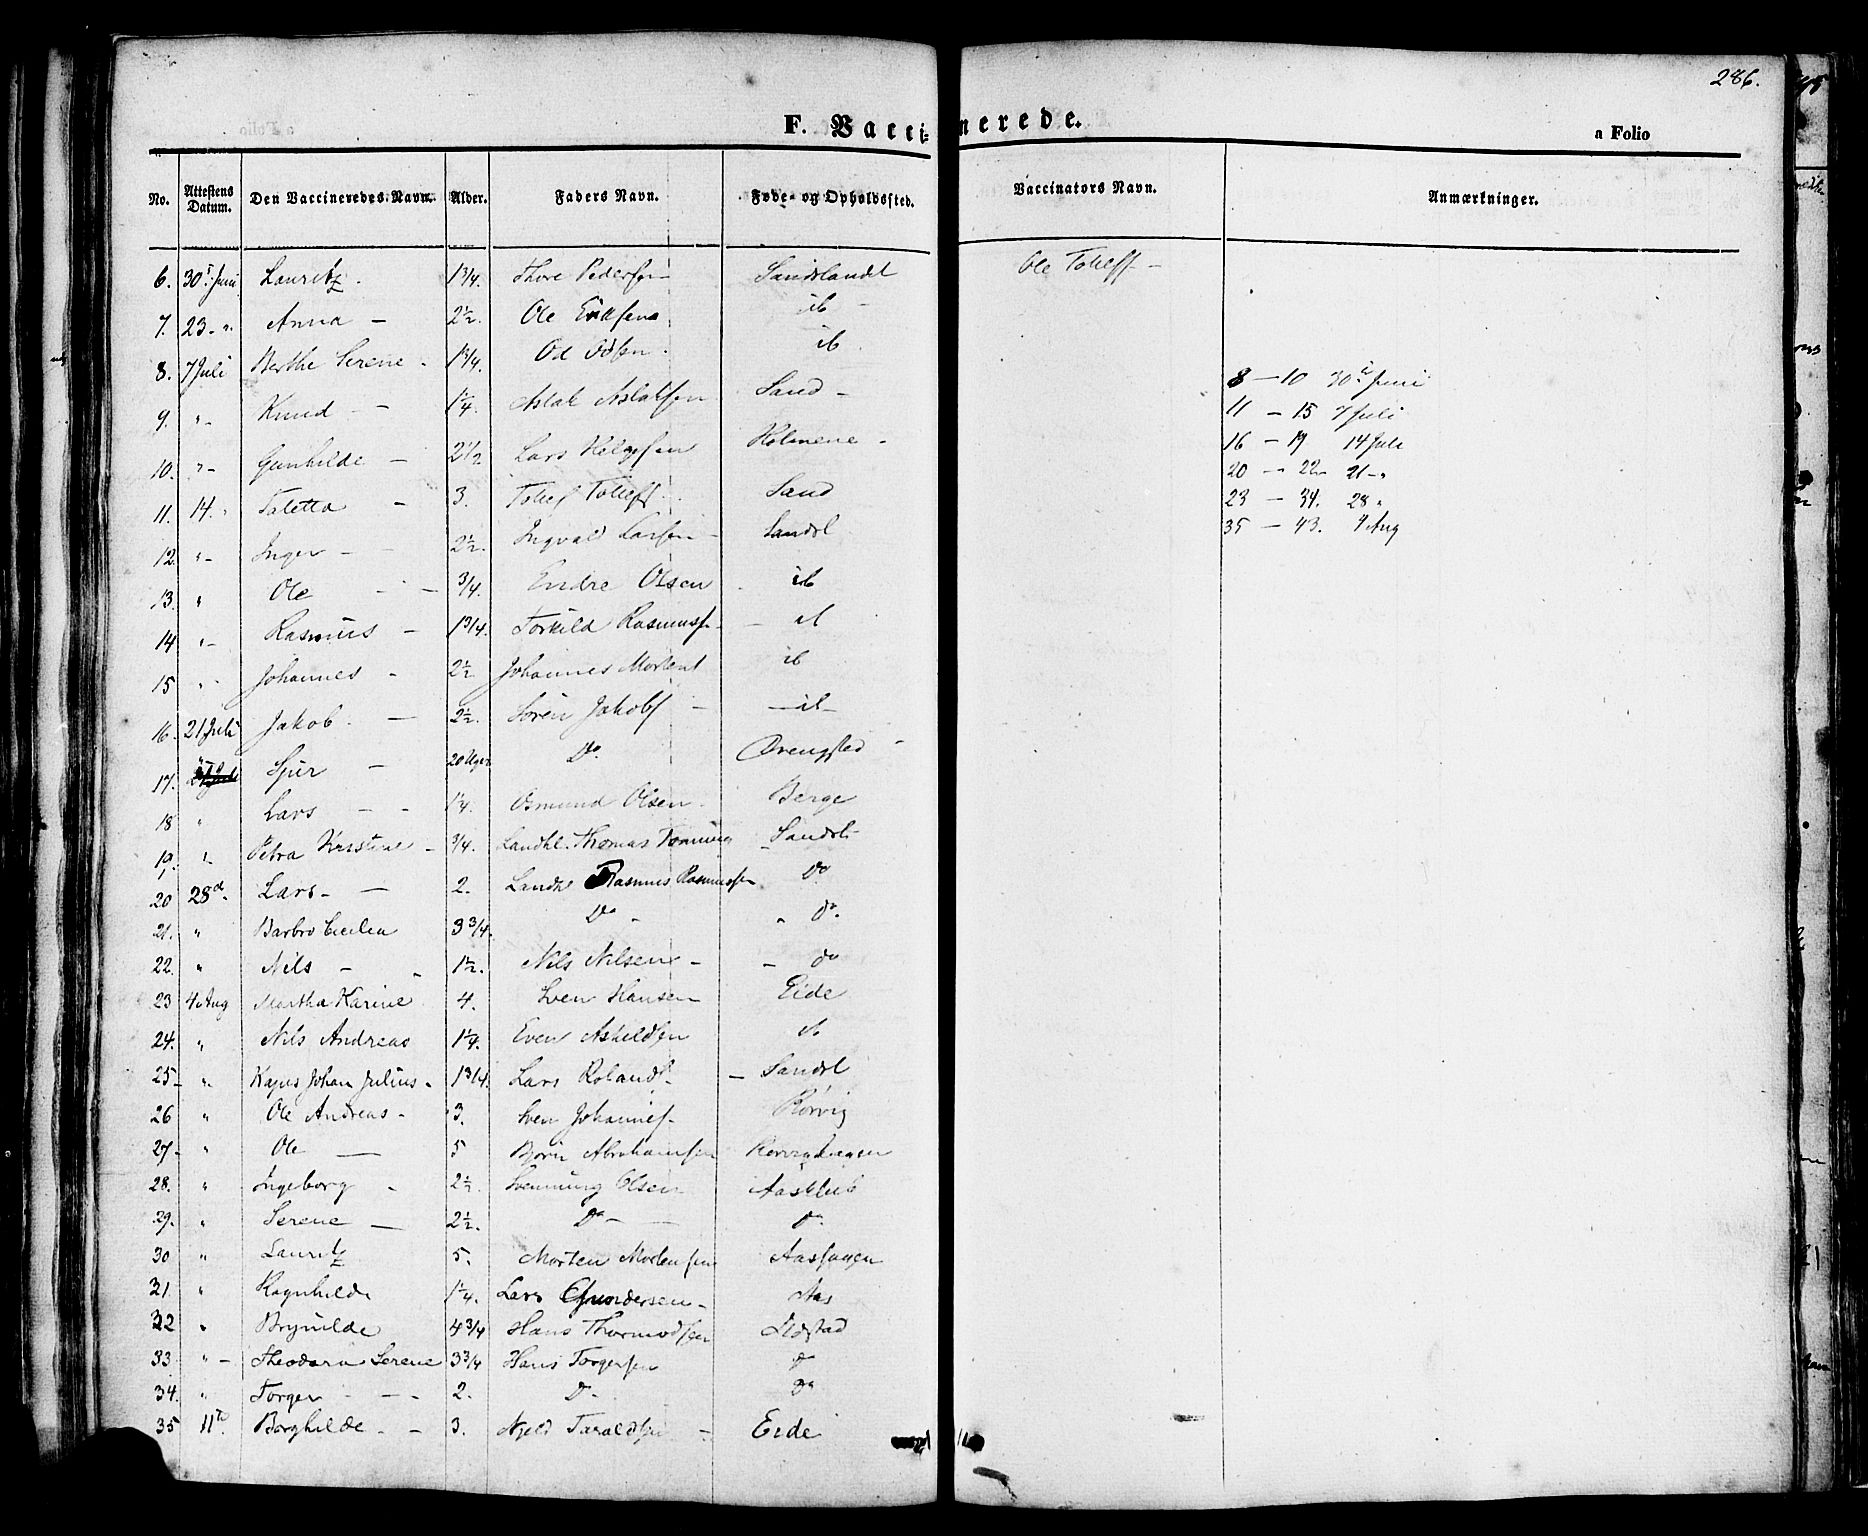 286.
F. Vaccinerede.
a Folio
No. Attestens Datum. Den Vaccineredes Navn. Alder. Faders Navn. Føde- og Opholdssted. Vaccinators Navn. Anmærkninger.
6. 30 Juni Lauritz 1 3/4. Thore Pedersen Sandsland Ole
7. 23 - " Anna - 2 1/2. Ole ib -
8. 7 Juli Berthe Serene - 1 3/4. Od Odsen. ib
8 - 10 30 Juni
9. " - Knud - 1 1/4. Aslak Aslaksen Sand -
11 - 15 7 Juli
10. " - Gunhilde - 2 1/2 Lars Helgesen Holmene -
16 - 19 14 Juli
20 - 22 21 - "
11. 14. " Taletta - 3. Sand
23 - 34. 28 "
12. " - Inger - 2 1/2. Ingvald Larsen - Sandsl
35 - 43. 4 Aug
13. " Ole - 3/4. Endre Olsen ib
14 " - Rasmus - 1 3/4. Torkild Rasmuss - ib
15 " Johannes - 2 1/2 Johannes Mortens ib
16 - 21 Juli Jakob. - 2 1/2. Søren Jakobs - - ib -
17. " - 20 Uger Do.
18 " Lars - - 1 1/4. Osmund Olsen. Berge
19. " Petra - 3/4. Landhl. Thomas Sandsl-
20 28d. Lars - - 2. Landh Rasmus Rasmussen Do
21. " Barbro Cecilia 3 3/4. Do - " do.
22. " Nils - 1 1/2. Nils Nilsen - - do
23 4 Aug Martha Karine 4. Sven Hansen Eide
24. " Nils Andreas 1 1/4. Even Askildsen ib
25 - " Johan Julius - 1 3/4. Lars - Sandsl
26 " Ole Andreas - 3. Sven Johannes - Rørvig
27 - " Ole - 5 Bjørn Abrahamsen
28. " Ingeborg - 2 1/2. Svenning Olsen
29. " Serene - 2 1/2. Do - do
30 " Lauritz 5. Morten Mortensen
31. " Ragnhilde 1 1/4. Lars Gundersen - Aas
32 " Brynilde 4 3/4 Hans Thormodsen
33 " - Theodora Serene 3 3/4 Hans Torgersen do
34. " Torger - - 2. Do - Do
35 11te Borghilde - - 3. Njeld Taraldsen - Eide